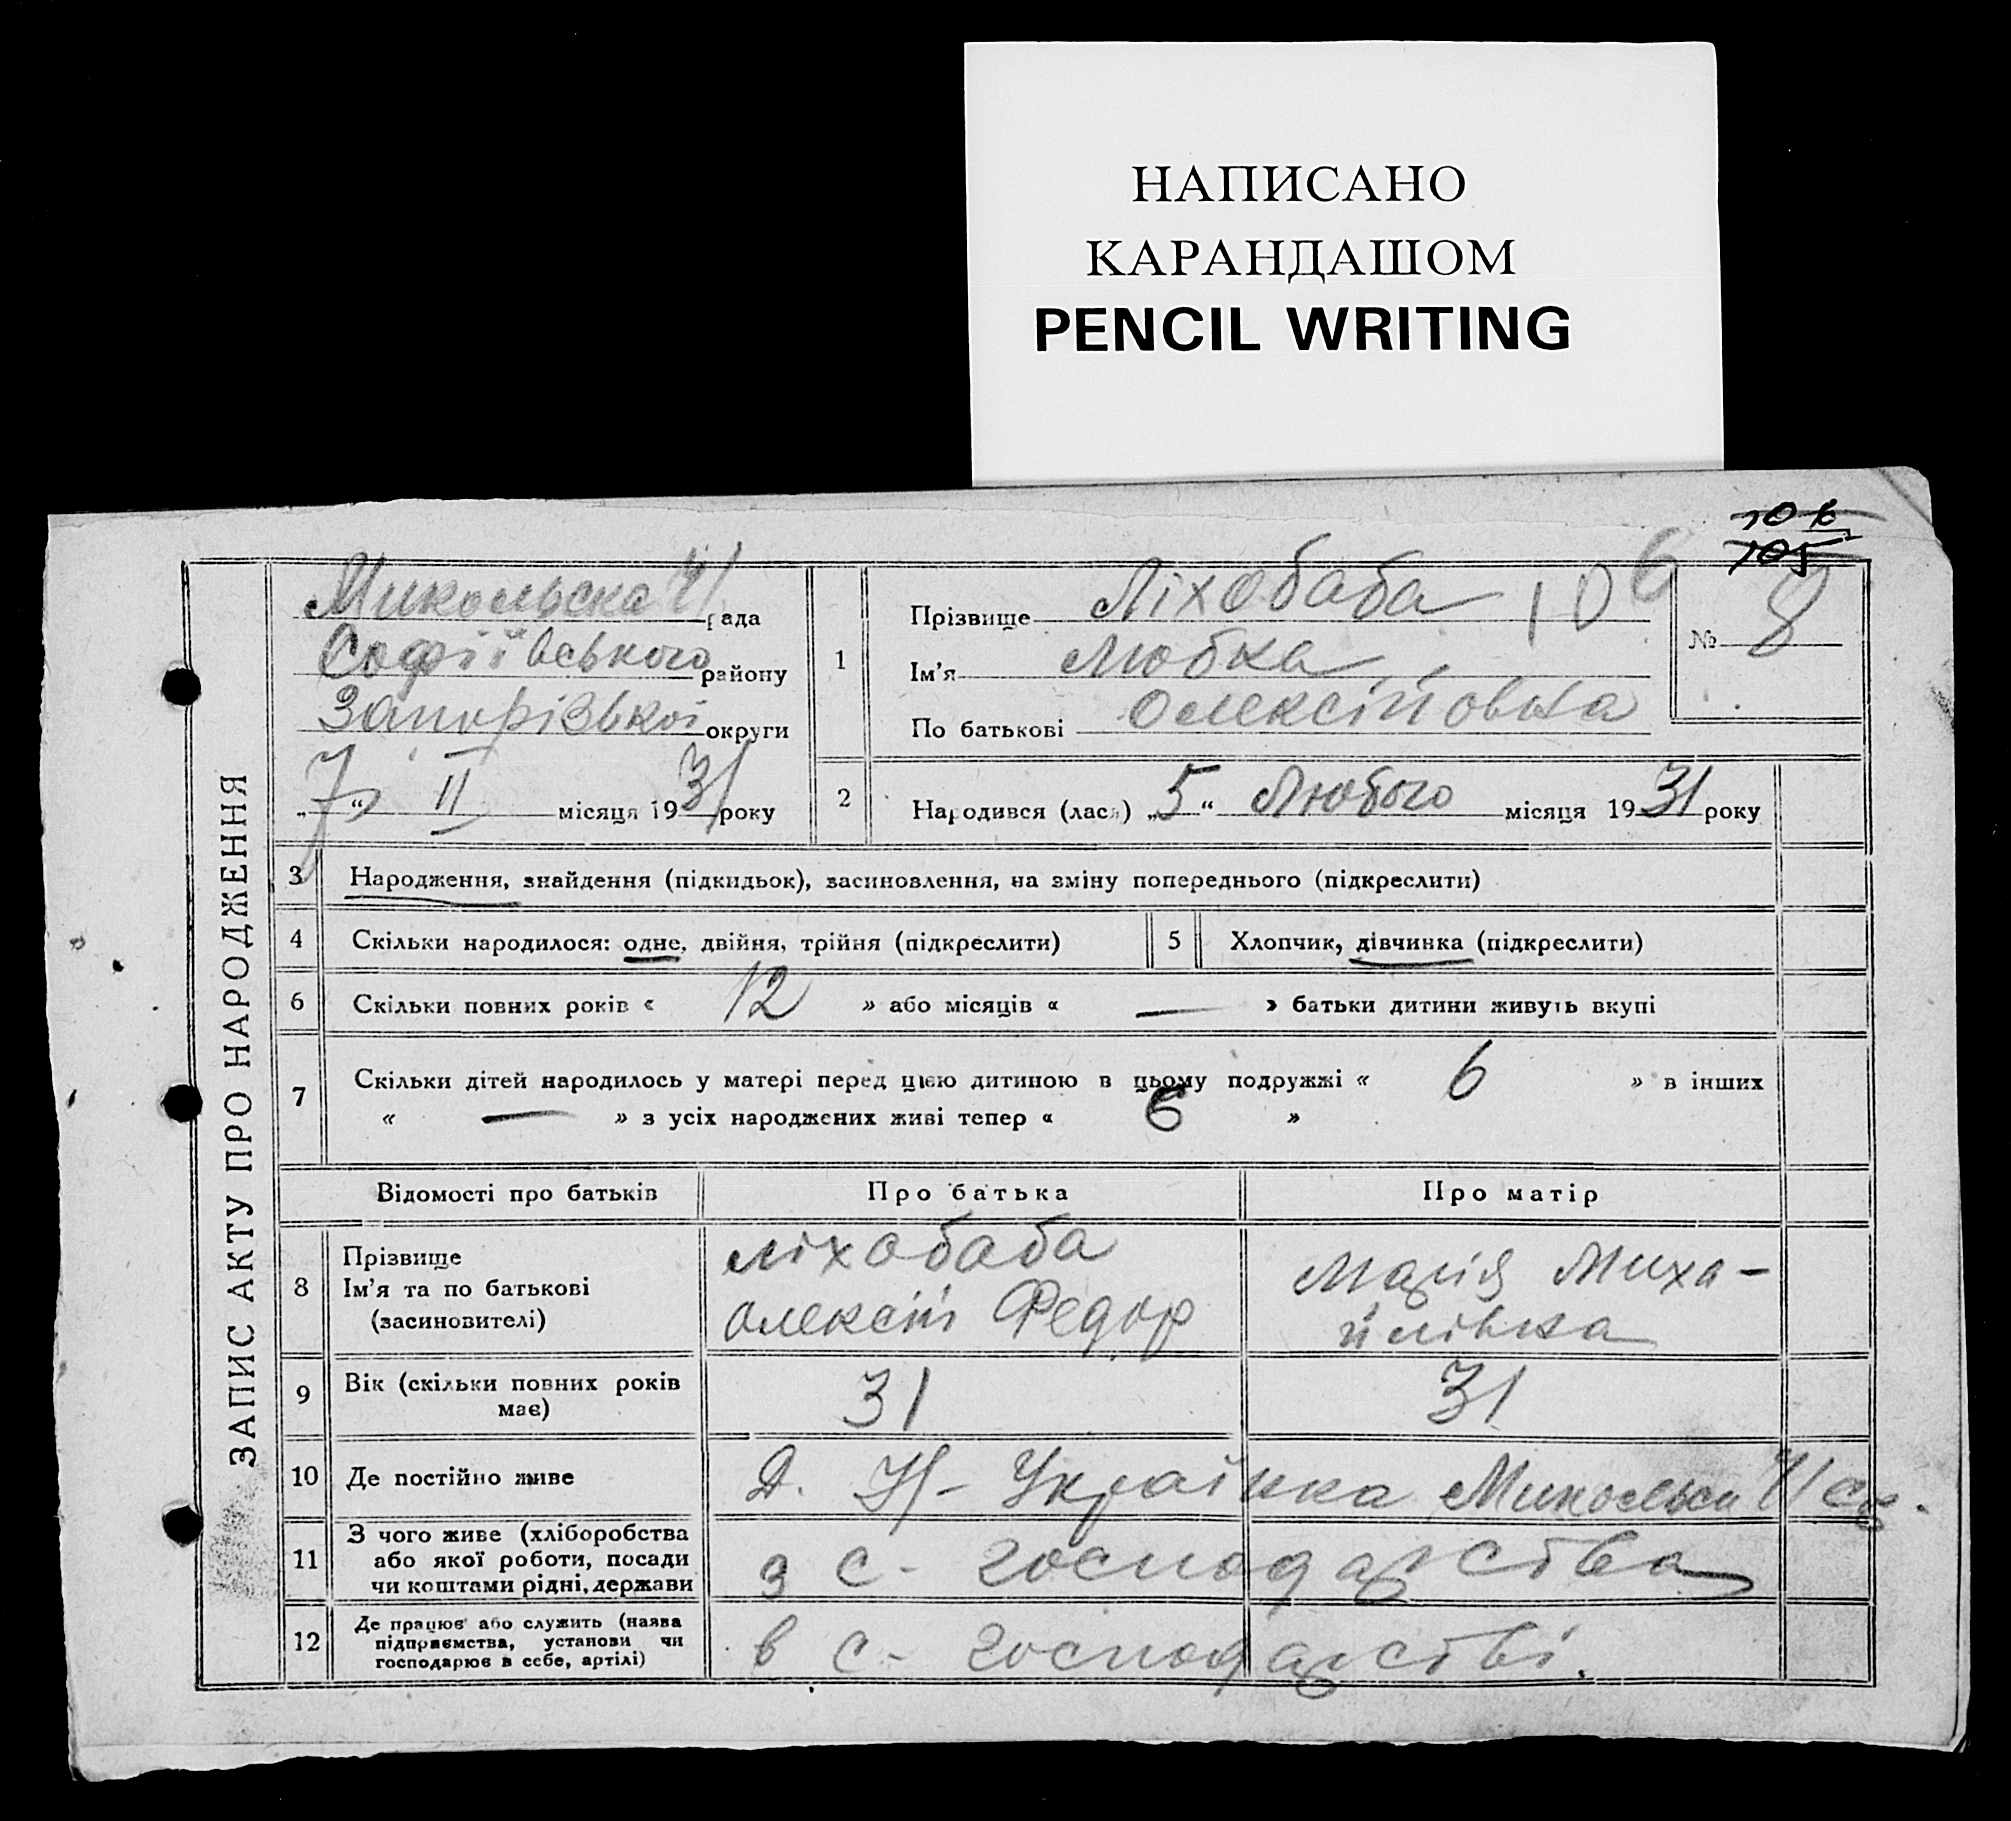 НАПИСАНО
КАРАНДАШОМ
PENCIL WRITING
106
105
ЗАПИС АКТУ ПРО НАРОДЖЕННЯ
Микольска II рада
Софіївського району
Запорізької округи
„7“ II місяця 1931 року
1 Прізвище Ліхобаба 106
Ім'я Любка
По батькові Олексійовна
№ 8
2 Народився (лася) „5“ Любого місяця 1931 року
3 Народження, знайдення (підкидьок), засиновлення, на зміну попереднього (підкреслити)
4 Скільки народилося: одне, двійня, трійня (підкреслити) 5 Хлопчик, дівчинка (підкреслити)
6 Скільки повних років « 12 » або місяців « — » батьки дитини живуть вкупі
7 Скільки дітей народилось у матері перед цією дитиною в цьому подружжі « 6 » в інших
« — » з усіх народжених живі тепер « 6 »
Відомості про батьків Про батька Про матір
8 Прізвище
Ім'я та по батькові
(засиновителі)
Ліхобаба
Олексій Федор
Марія Миха-
йлівна
9 Вік (скільки повних років
має)
31 31
10 Де постійно живе Д. Н-Українка Микольськ
11 З чого живе (хліборобства
або якої роботи, посади
чи коштами рідні, держави
з с-господарства
12 Де працює або служить (назва
підприємства, установи чи
господарює в себе, артілі)
в с-господарстві.